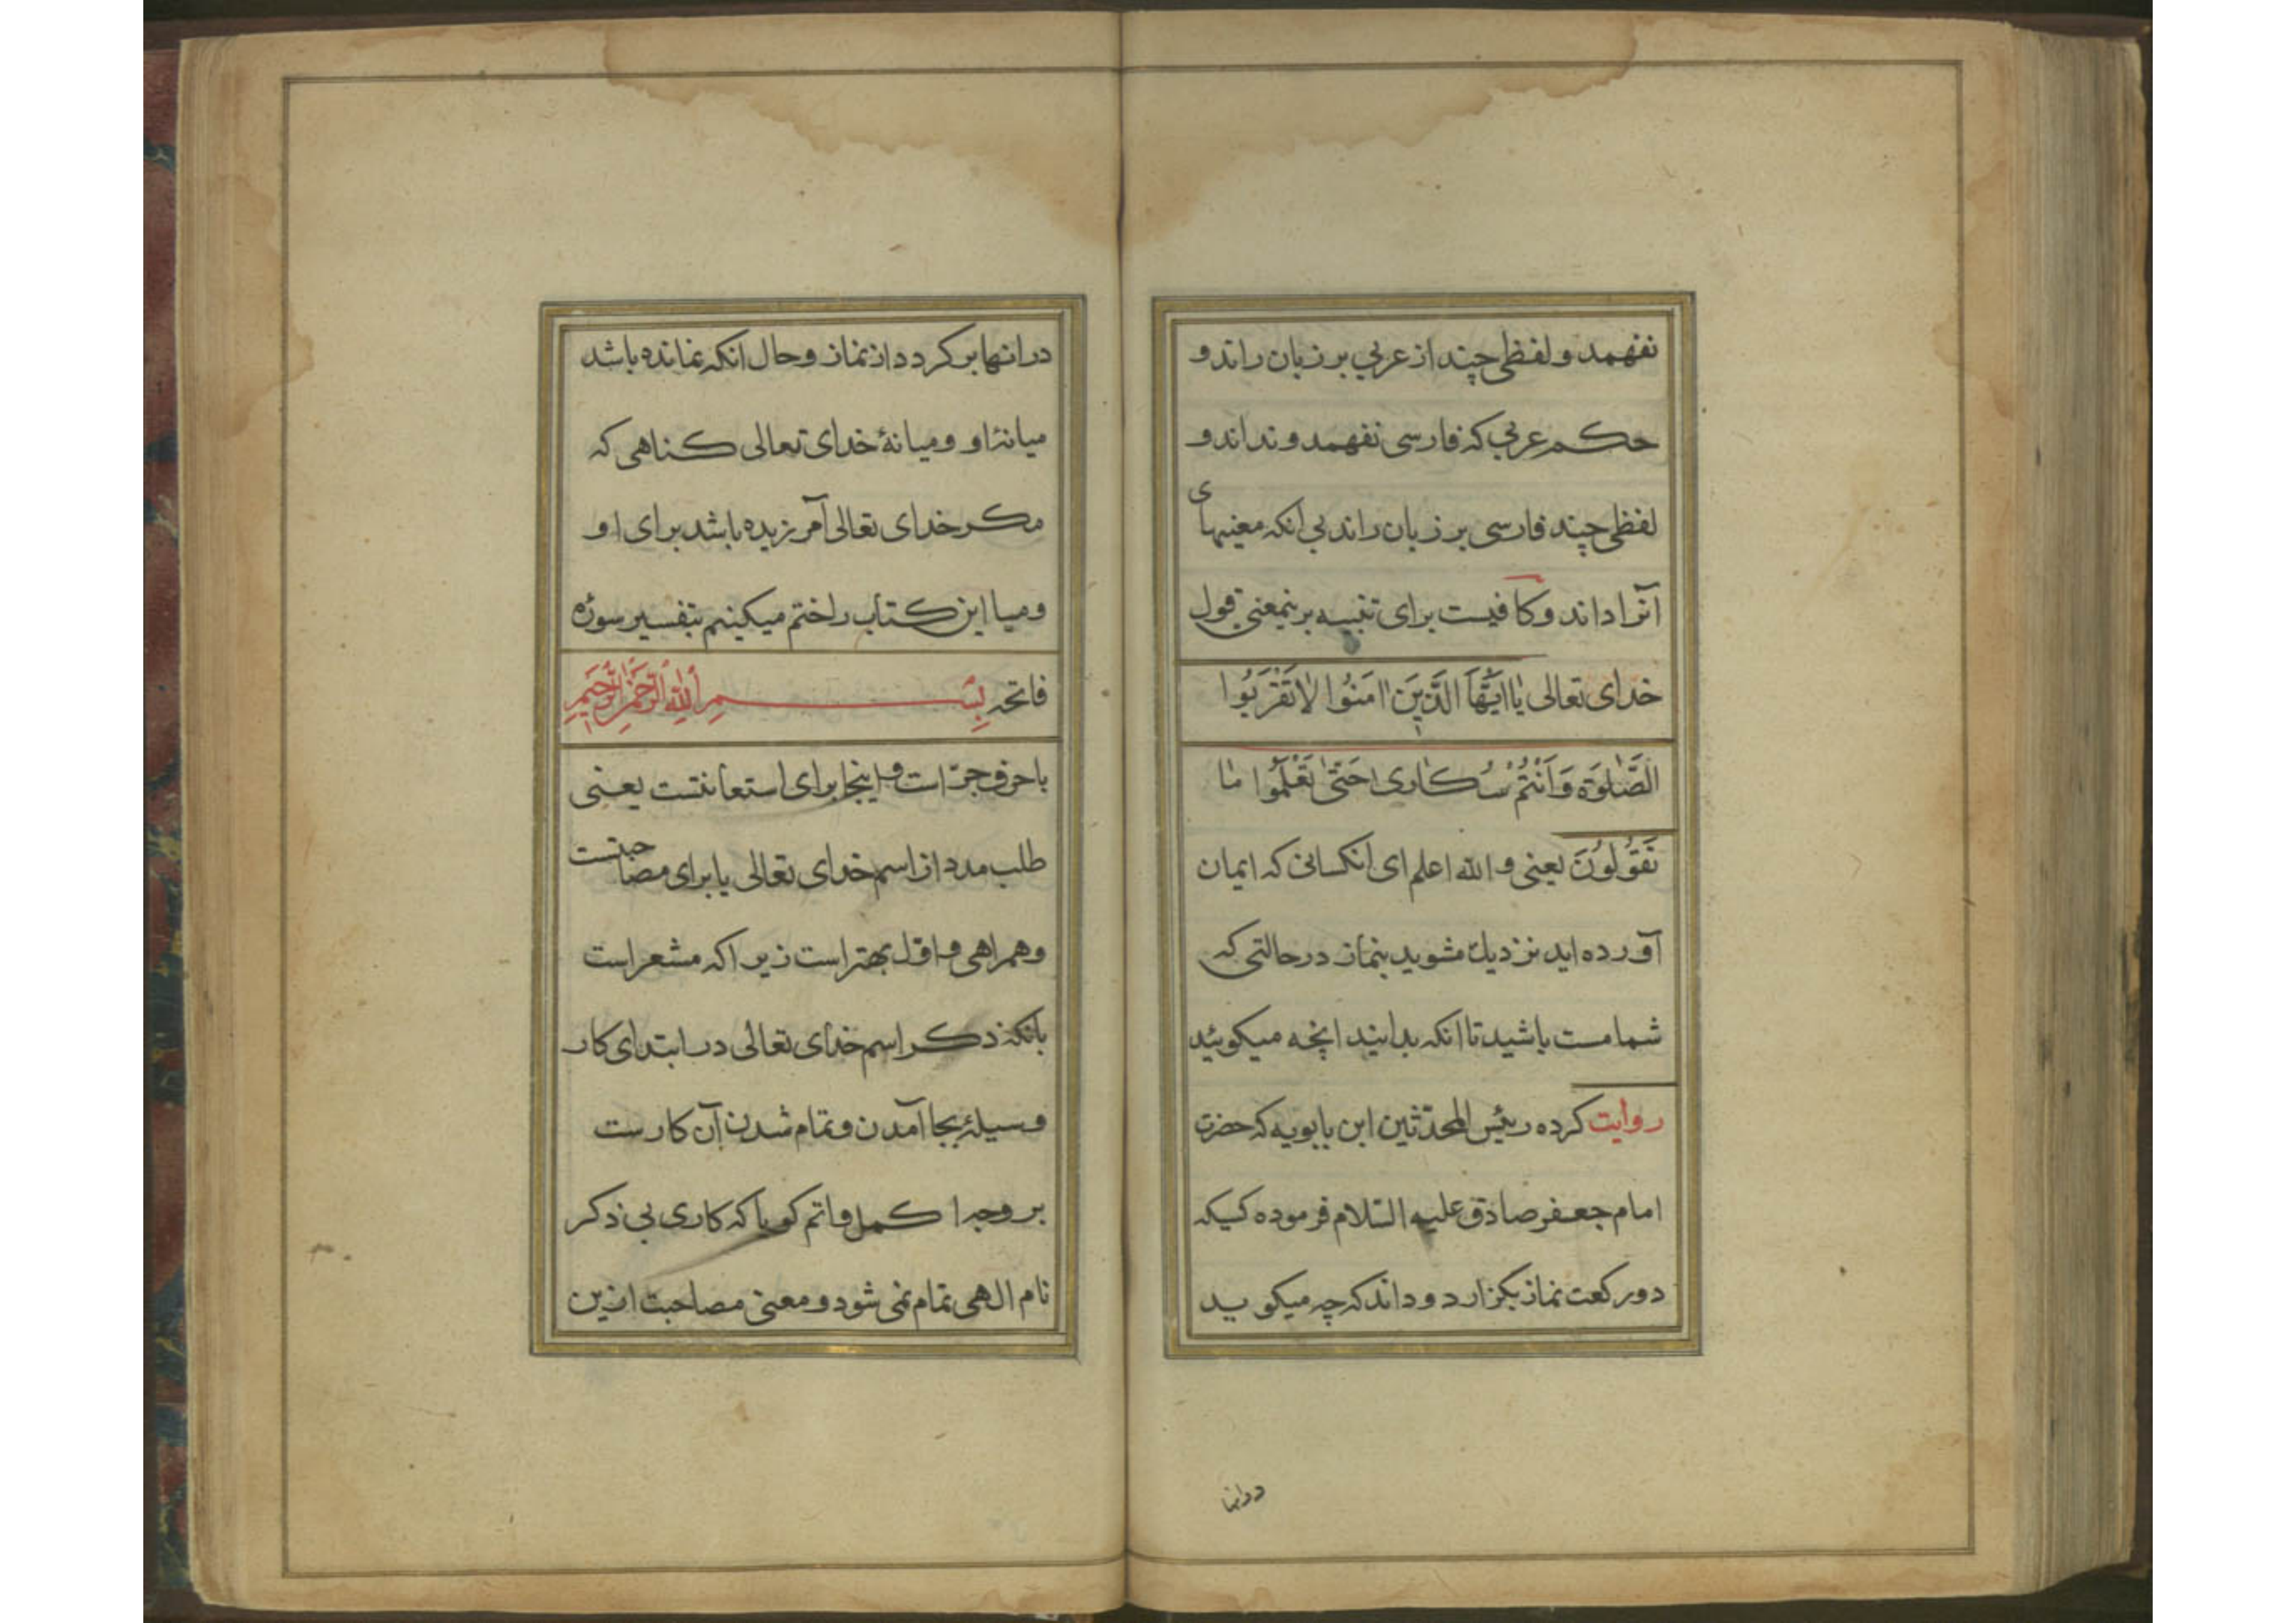 نفهمد و لفظی چند از عربی بر زبان راند و
حکم عربی که فارسی نفهمد و نداند و
لفظی چند فارسی بر زبان راند بی انکه معنیهای
آنرا داند و کافیست برای تنبیه برینمعنی قول
خدای تعالی یٰا اَیُّهَا الَّذینَ اٰمَنُوا لٰا تَقْرَبُوا
الصَّلٰوةَ وَ اَنْتُمْ سُکٰاریٰ حَتّیٰ تَعْلَمُوا مٰا
تَقُولُونَ یعنی و الله اعلم ای انکسانی که ایمان
آورده اید نزدیك مشوید بنماز در حالتی که
شما مست باشید تا انکه بدانید انچه میکوئید
روایت کرده رئیس المحدّثین ابن بابویه که حضرت
امام جعفر صادق علیه السّلام فرموده کسیکه
دو رکعت نماز بکزارد و داند که چه میکوید
در انها
در انها برکردد از نماز و حال انکه نمانده باشد
میانهٔ او و میانهٔ خدای تعالی کناهی که
مکر خدای تعالی آمرزیده باشد برای او
و میا این کتاب را ختم میکنیم بتفسیر سورهٔ
فاتحه بِسْمِ اللهِ الرَّحْمٰنِ الرَّحیمِ
با حرف جرّ است و اینجا برای استعانتست یعنی
طلب مدد از اسم خدای تعالی یا برای مصاحبتست
و همراهی و اوّل بهتر است زیرا که مشعر است
بانکه ذکر اسم خدای تعالی در ابتدای کار
وسیلهٔ بجا آمدن و تمام شدن آن کارست
بر وجه اکمل و اتم کویا که کاری بی ذکر
نام الهی تمام نمی شود و معنی مصاحبت ازین